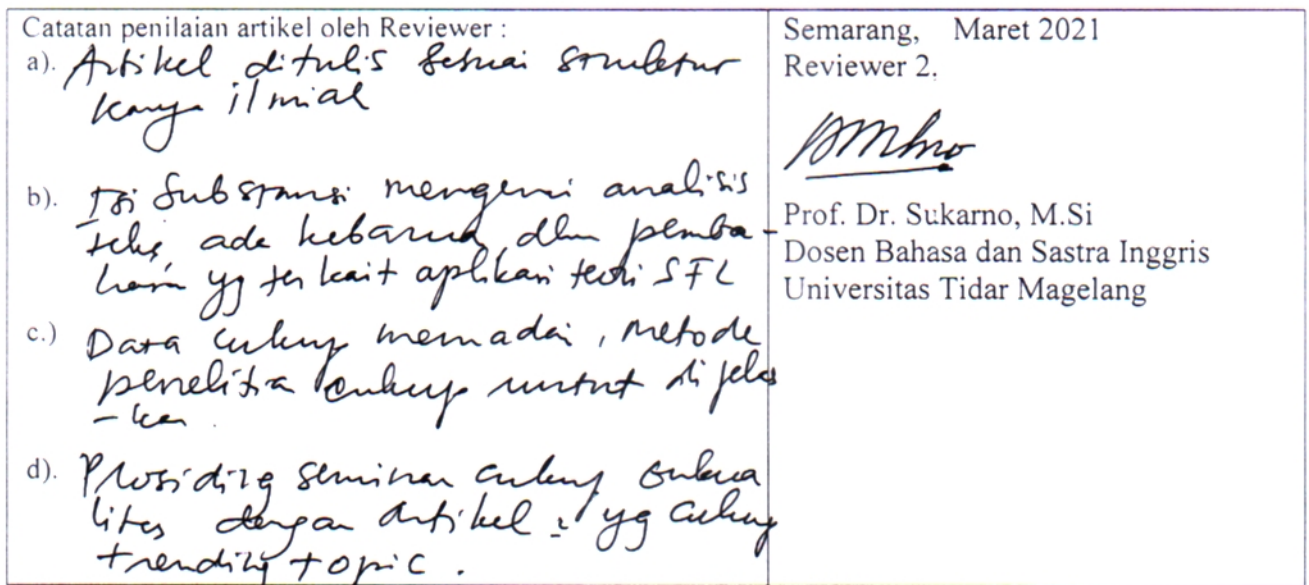 Catatan penilaian artikel oleh Reviewer :
a). Artikel ditulis sesuai struktur
karya ilmiah
b). Isi Substansi mengenai analisis
teks, ada kebaruan dlm pemba-
hasan yg terkait aplikasi teori SFL
c.) Data cukup memadai, metode
penelitian cukup runtut dijelas
-kan.
d). Prosiding seminar cukup
litas dengan artikel yg cukup
trending topic.
Semarang, Maret 2021
Reviewer 2.
Prof. Dr. Sukarno, M.Si
Dosen Bahasa dan Sastra Inggris
Universitas Tidar Magelang